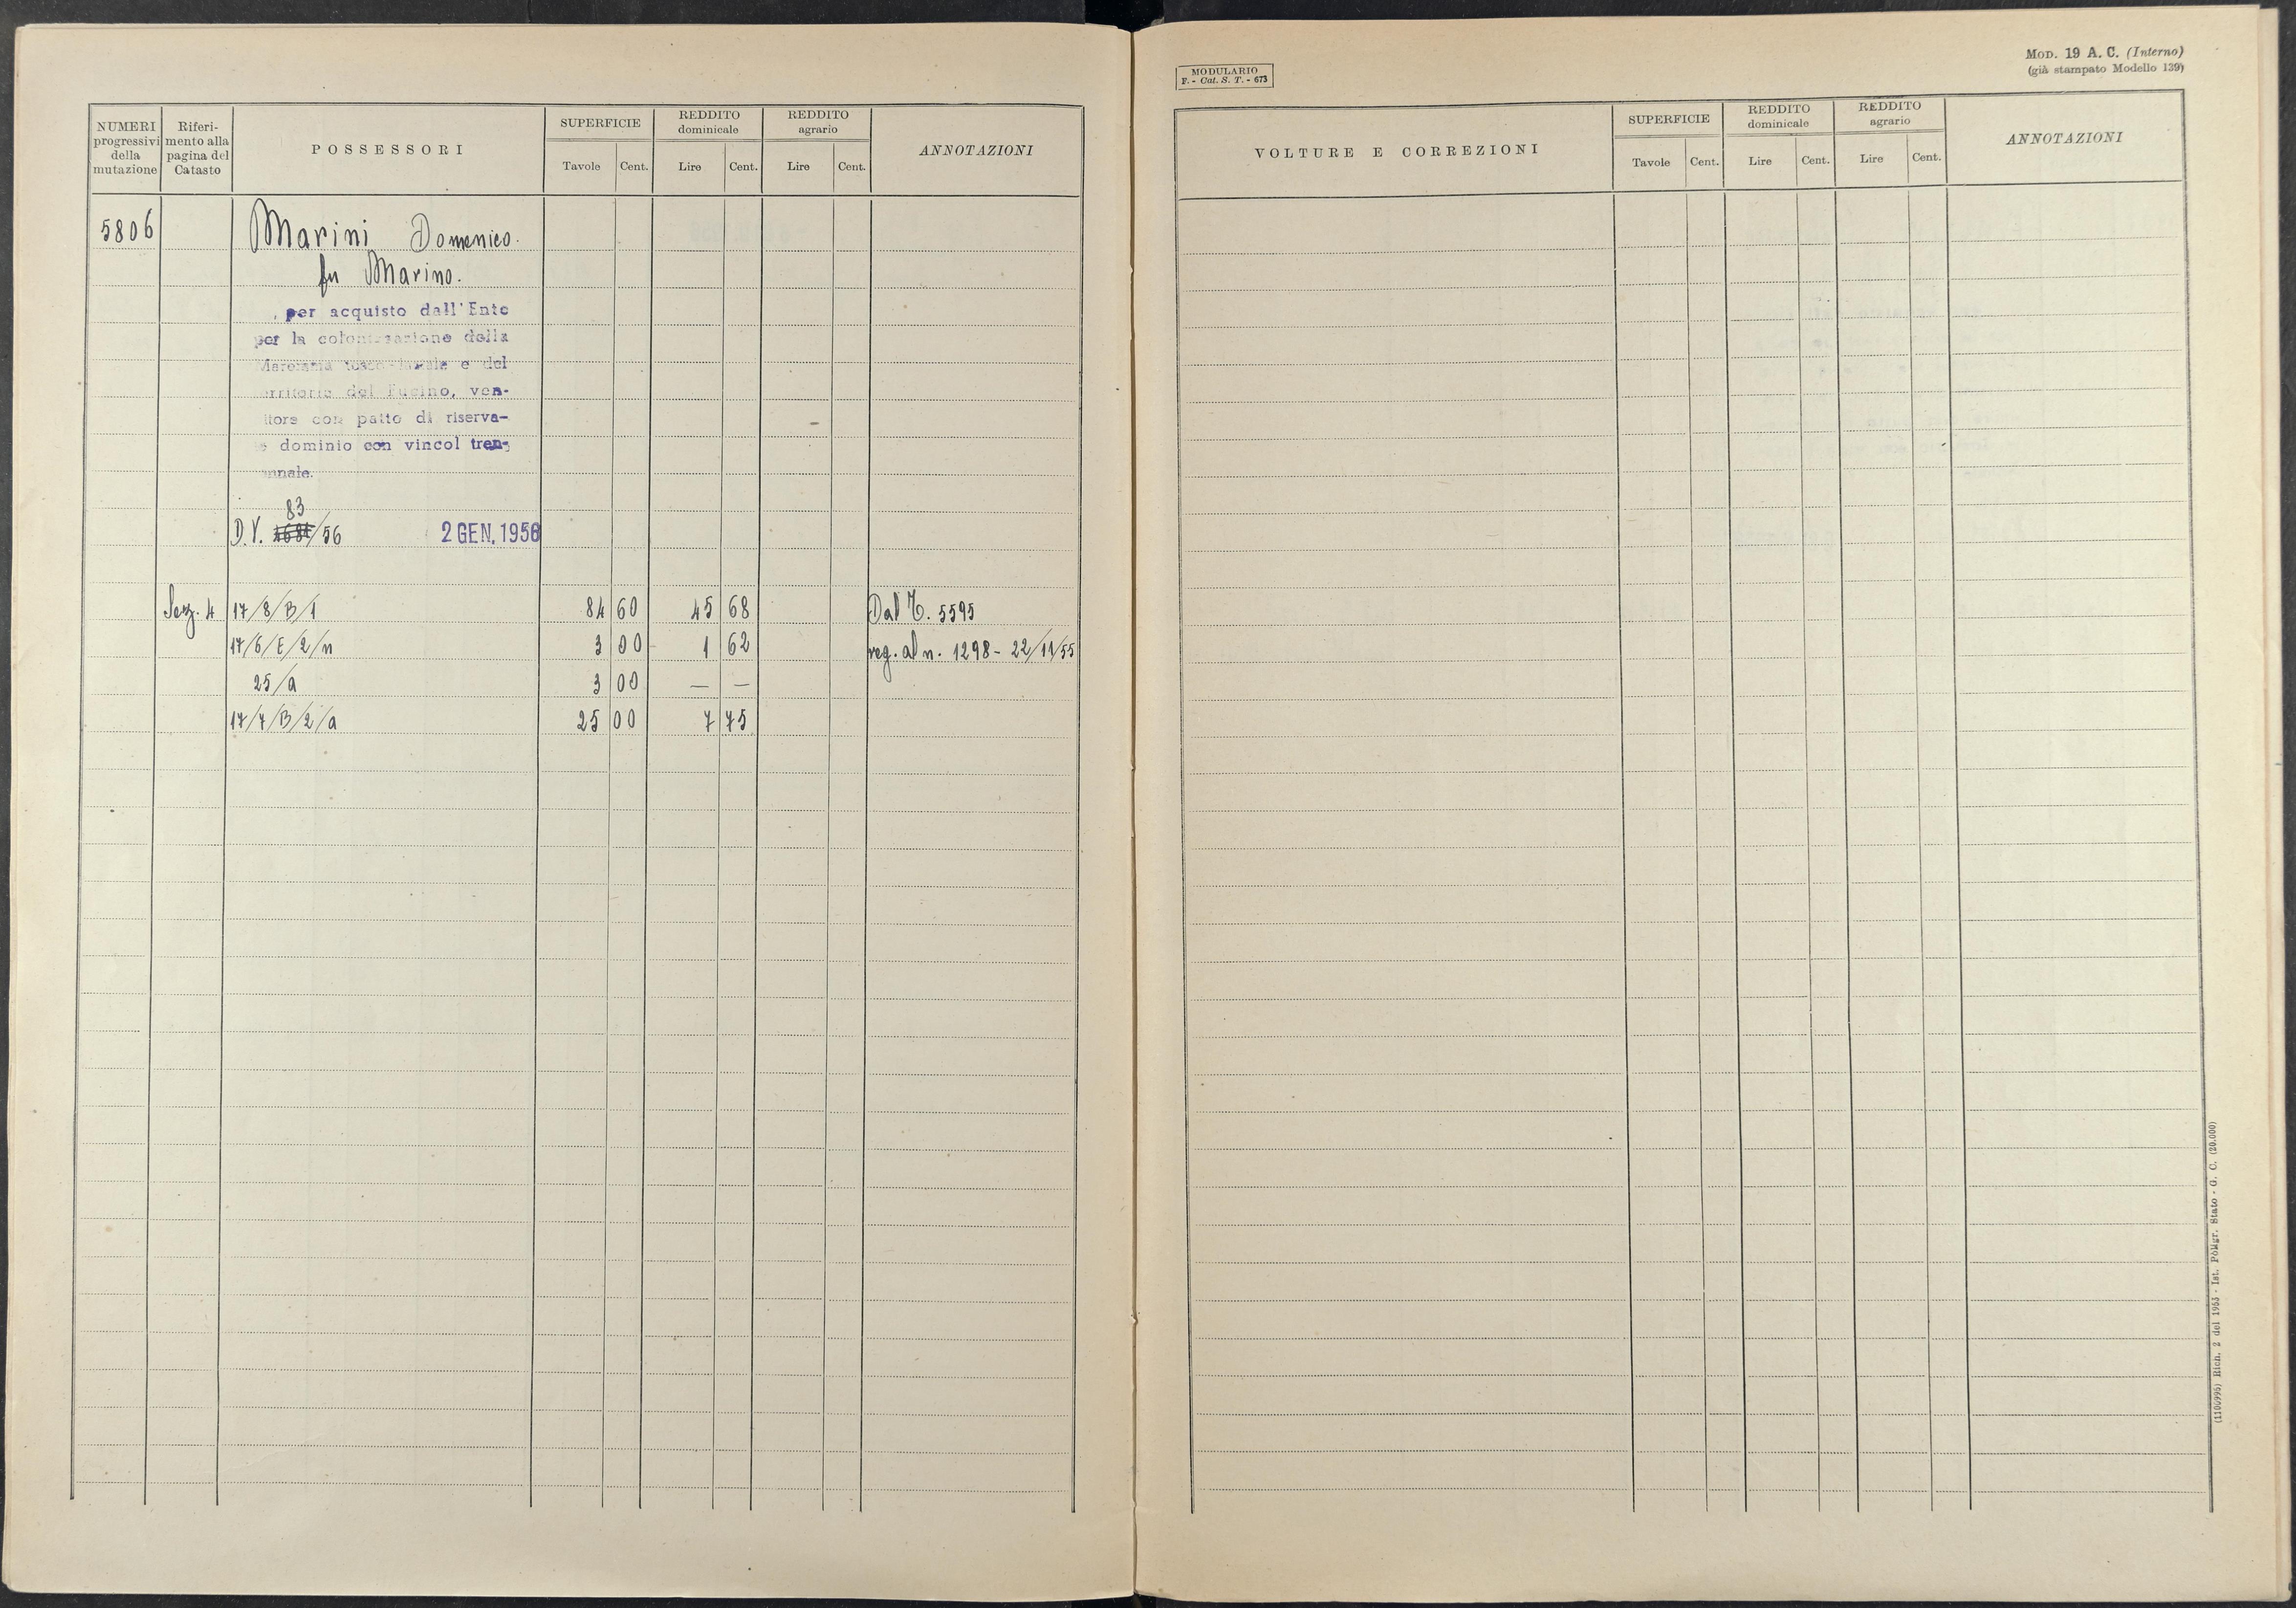 NUMERI progressivi della mutazione
Riferimento alla pagina del Catasto
POSSESSORI
SUPERFICIE
Tavole Cent.
REDDITO dominicale
Lire Cent.
REDDITO agrario
Lire Cent.
ANNOTAZIONI
5806 Marini Domenico.
fu Marino.
per acquisto dall'Ente
per la colonizzazione della
Maremma tosco-laziale e del
territorio del Fucino, ven-
ditore con patto di riserva-
to dominio con vincol tren-
ennale.
83
D.V. /56 2 GEN. 1956
Sez. 4 17/8/B/1 84 60 45 68 Dal T. 5595
17/6/E/2/n 3 00 1 62 reg. al n. 1298 - 22/11/55
25/a 3 00 — —
17/7/B/2/a 25 00 7 75
MODULARIO
F. - Cat. S. T. - 673
MOD. 19 A. C. (Interno)
(già stampato Modello 139)
VOLTURE E CORREZIONI
SUPERFICIE
Tavole Cent.
REDDITO dominicale
Lire Cent.
REDDITO agrario
Lire Cent.
ANNOTAZIONI
(1100995) Rich. 2 del 1953 - Ist. Poligr. Stato - G. C. (20.000)